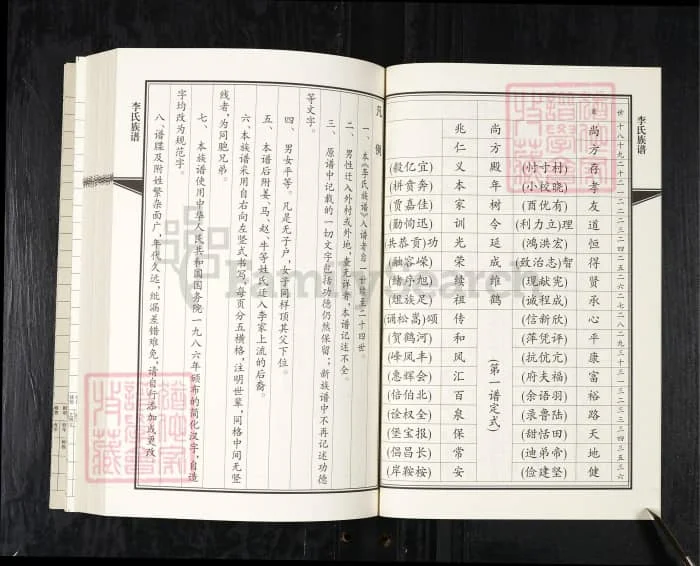 李氏族谱
世 十八 十九 二十 二一 二二 二三 二四 二五 二六 二七 二八 二九 三十 三一 三二 三三 三四 三五 三六
尚方存孝友道恒得贤承心平康富裕路天地健
(忖寸村)(小校晓)(酉优有)(利力立)理(鸿洪宏)(致治志)智(现献宪)(诚程成)(信新欣)(萍凭评)(抗优亢)(府夫福)(余语羽)(录鲁陆)(甜恬田)(迪弟帝)(俭建坚)
尚方殿年树令延成维鹤 (第一谱定式)
兆仁义本家训光荣续祖传和风汇百泉保常安
(毅亿宜)(贲奔)(贾嘉佳)(勤恂迅)(共恭贡)功(融容嵘)(绪序旭)(族足)(诵松嵩)颂(贺鹤河)(峰凤丰)(惠辉会)(倍伯北)(诠权全)(堡宝报)(倡昌长)(岸鞍桉)
凡例
一、本《李氏族谱》入谱者自一世续至二十四世。
二、男性迁入外村或外地,查无详者,本谱记述不全。
三、原谱中记载的一切文字包括功德仍然保留;新族谱中不再记述功德
等文字。
四、男女平等。凡是无子户,女子同样顶其父下位。
五、本谱后附姜、马、赵、牛等姓氏迁入李家上流的后裔。
六、本族谱采用自右向左竖式书写,每页分五横格,注明世辈,同格中间无竖
线者,为同胞兄弟。
七、本族谱使用中华人民共和国国务院一九八六年颁布的简化汉字,自造
字均改为规范字。
八、谱牒及附姓繁杂面广,年代久远,纰漏差错难免,请自行添加或更改
李氏族谱
FamilySearch